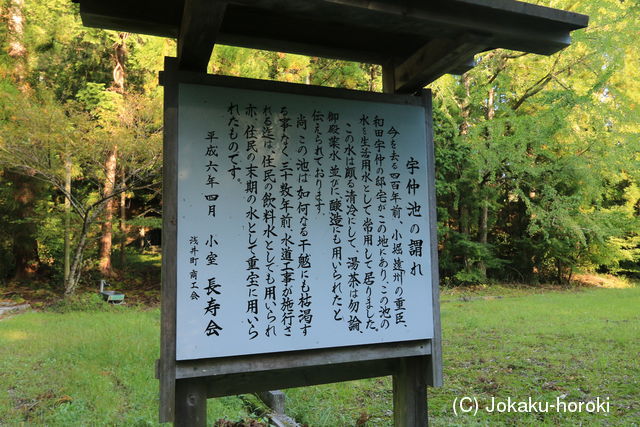 宇仲池の謂れ
今を去る四百年前、小堀遠州の重臣、
和田宇仲の邸宅がこの地にあり、この池の
水を生活用水として常用して居りました。
この水は頗る清冷にして、湯茶は勿論
御殿薬水、並びに醸造にも用いられた、と
伝えられております。
尚、この池は如何なる干魃にも枯渇す
る事なく三十数年前、水道工事が施行さ
れる迄は、住民の飲料水としても用いられ
亦、住民の末期の水として重宝に用いら
れたものです。
平成六年四月 小室 長寿会
浅井町商工会
(C) Jokaku-horoki